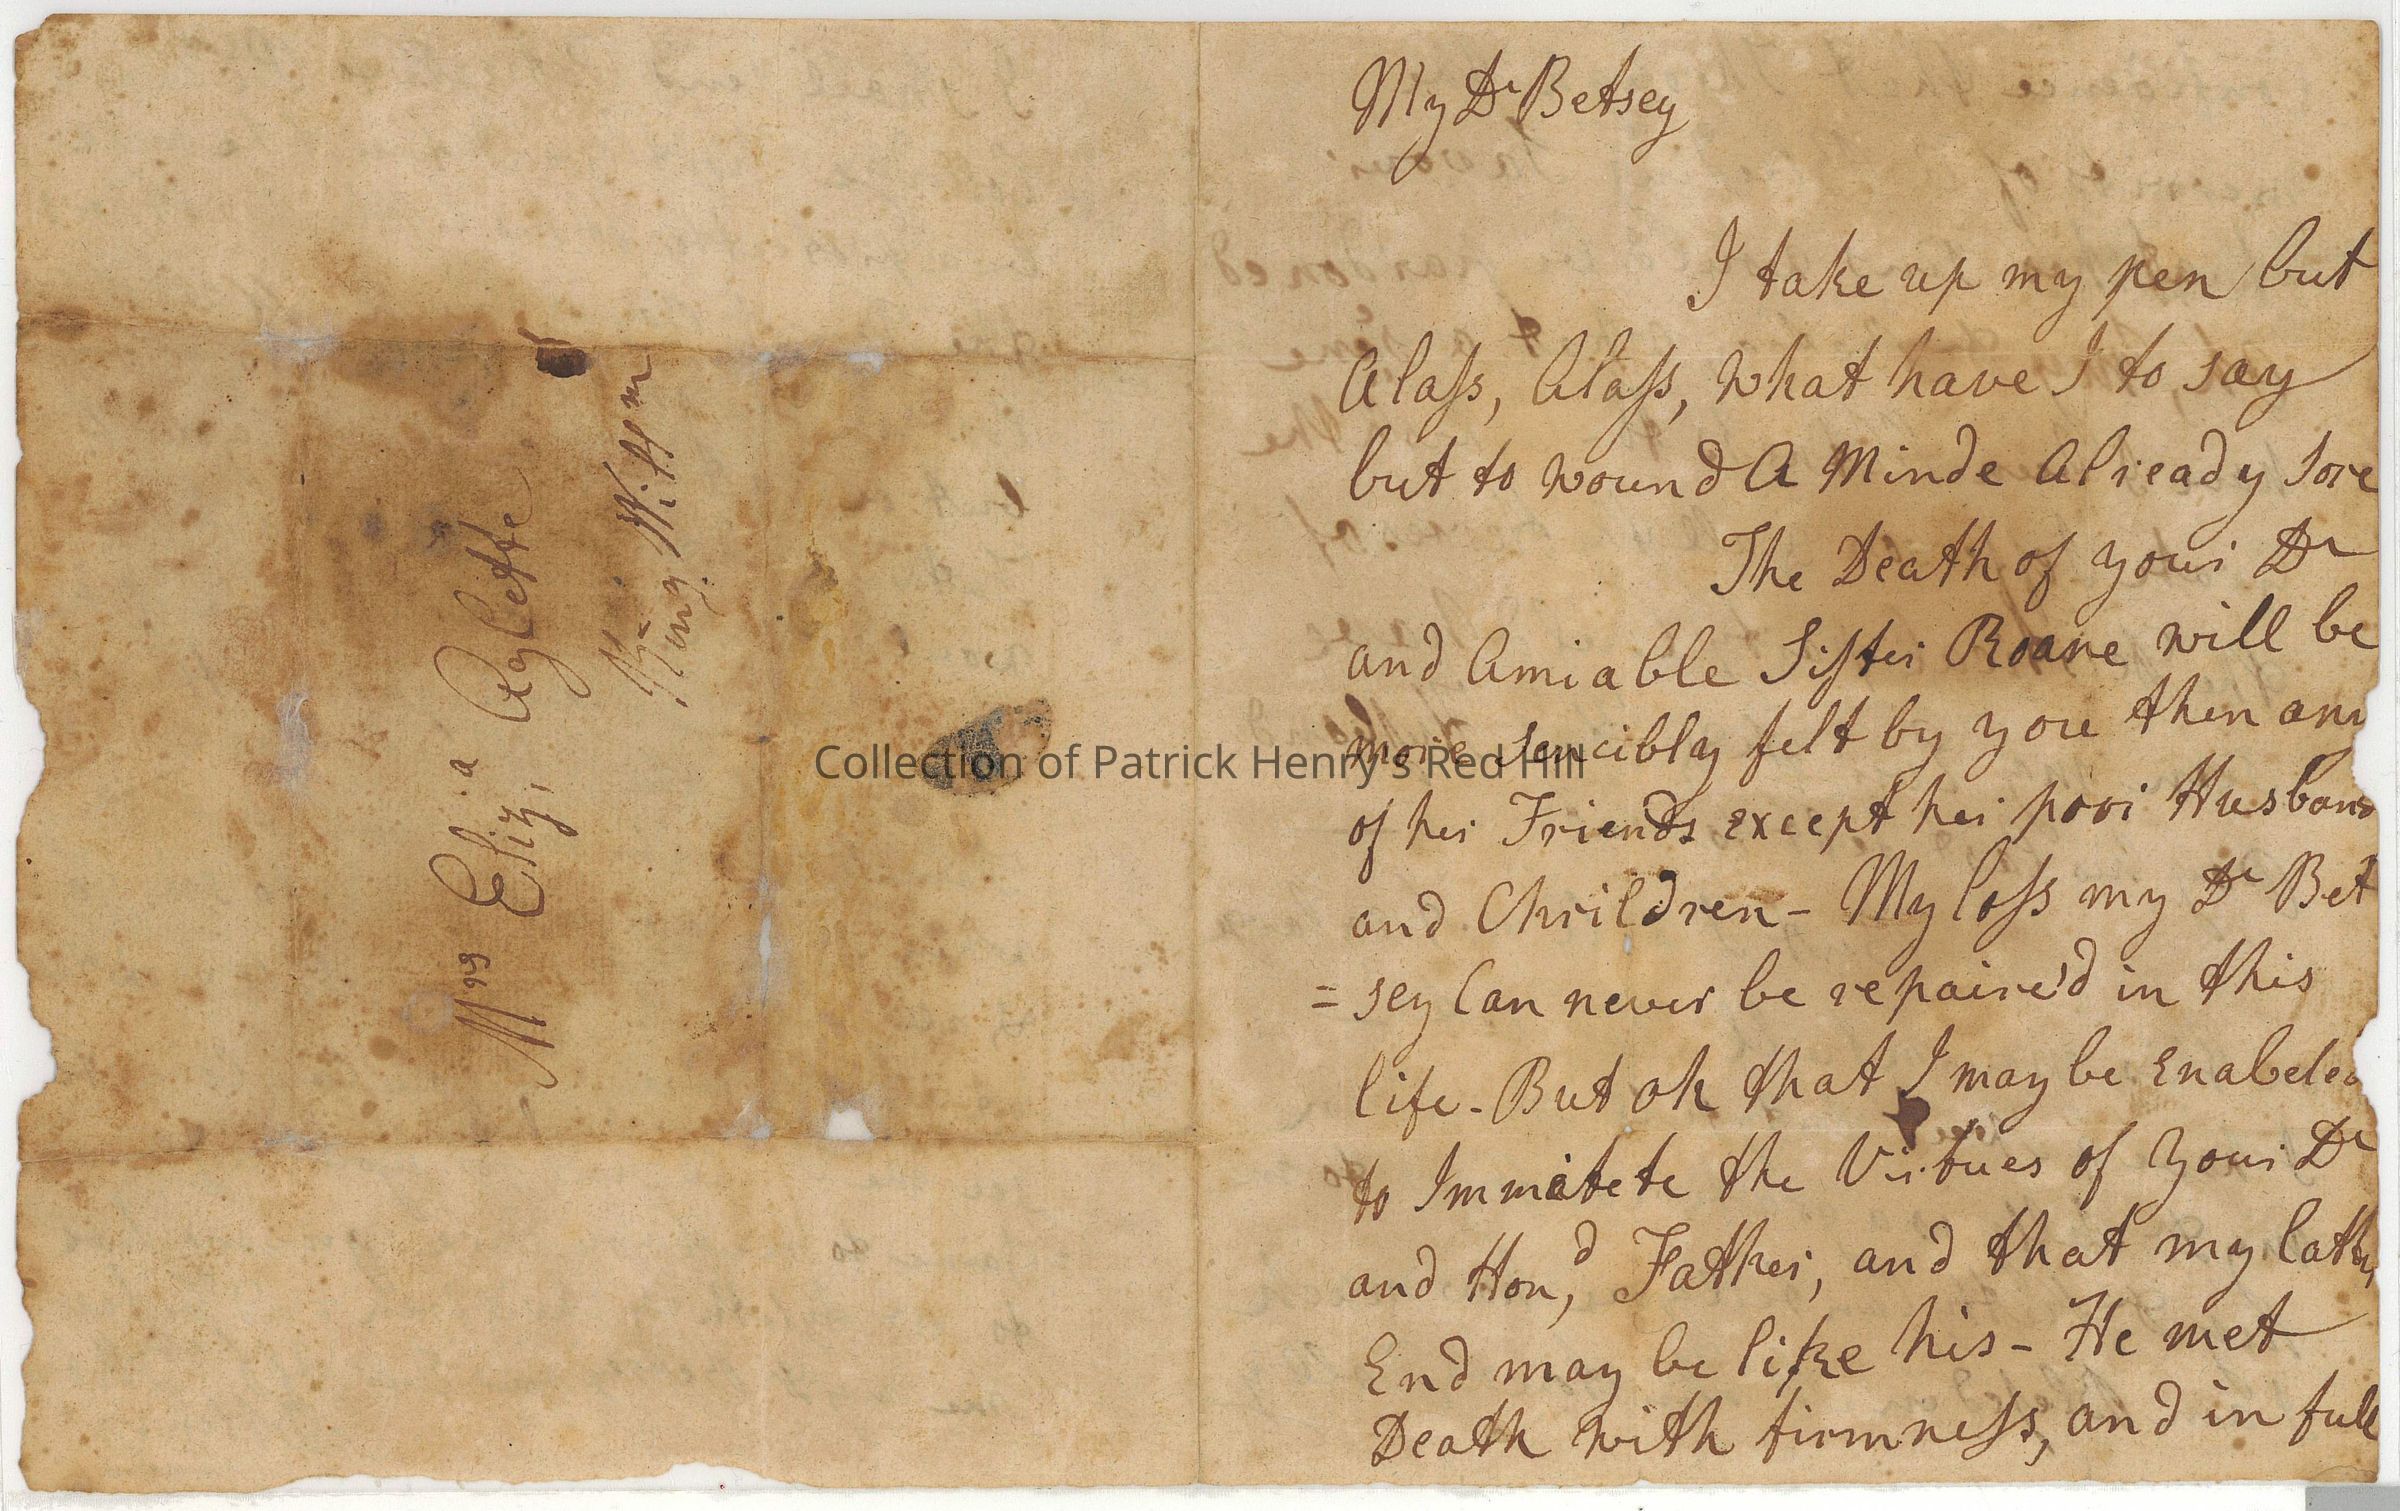 Mrs Eliz,a Aylette
King Willm
My Dr Betsey
I take up my pen but
Alass, Alass, what have I to say
but to wound A Minde Already sore
The Death of your Dr
and Amiable Sister Roane will be
more sencibly felt by you then any
of her Friends except her poor Husband
and Chrildren - My loss my Dr Bet
= sey Can never be repaire'd in this
life. But oh that I may be Enabeled
to Immitete the Virtues of Your Dr
and Hon,d Father, and that my latty
End may be like his - He met
Death with firmness, and in full
Collection of Patrick Henry's Red Hill